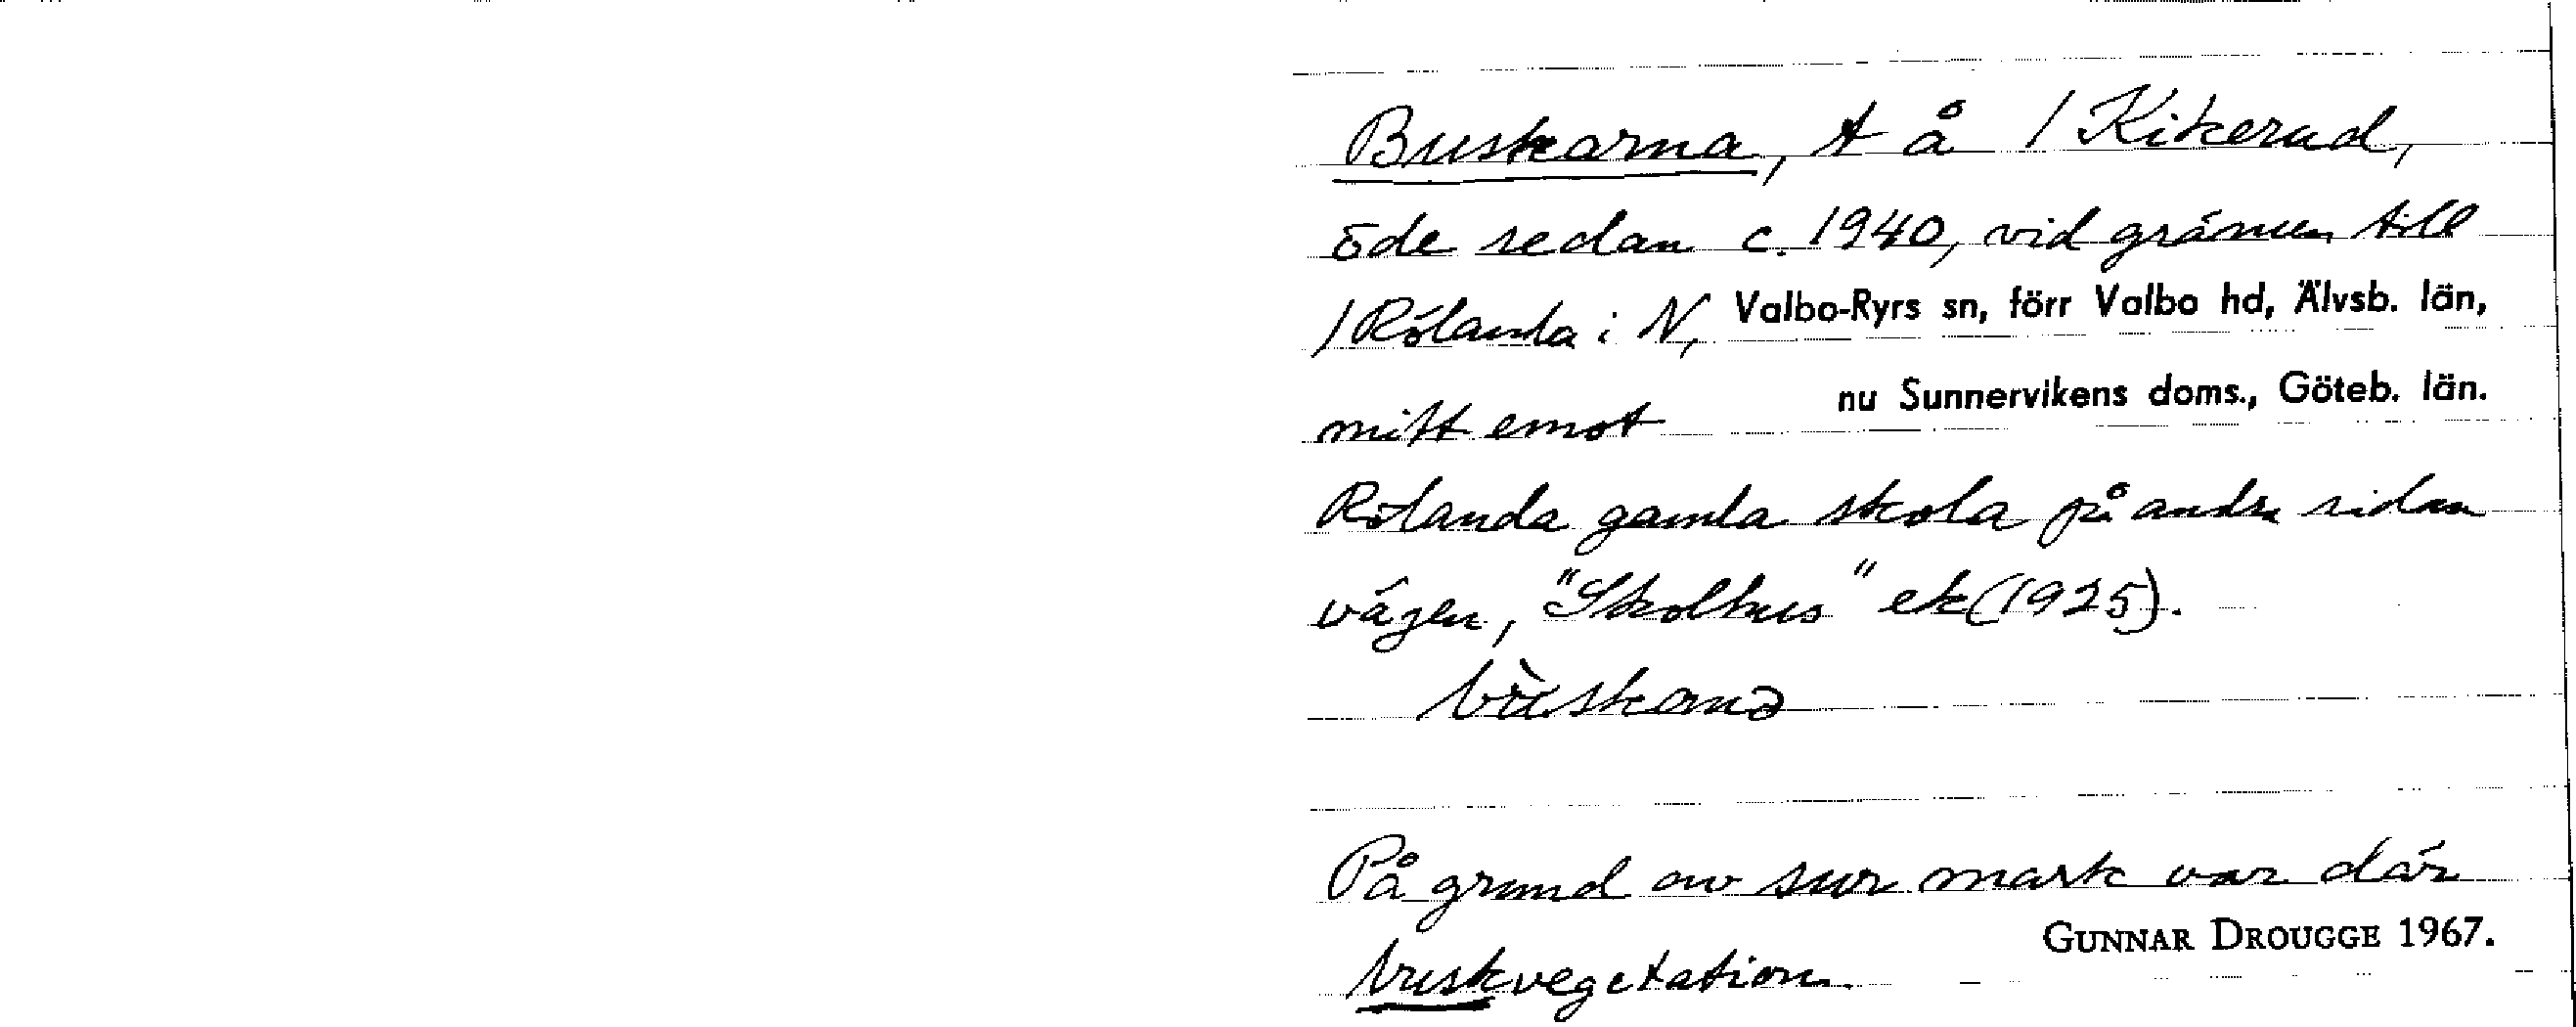 Buskarna, t å / Kikerud,
öde sedan c. 1940, vid gränsen till
/ Rölanda i N, Valbo-Ryrs sn, förr Valbo hd, Älvsb. län,
nu Sunnervikens doms., Göteb. län.
mitt emot
Rölanda gamla skola på andra sidan
vägen, "Skolhus" ek (1925).
bùskarnə
På grund av sur mark var där
GUNNAR DROUGGE 1967.
buskvegetation.